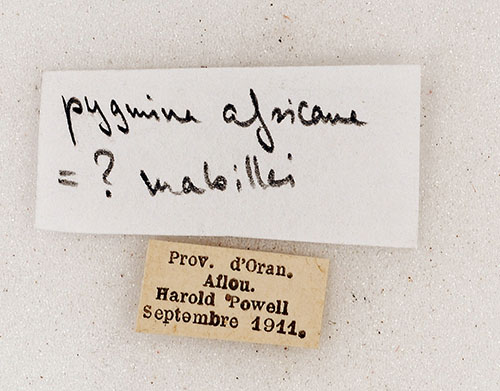 pygmina africana
= ? mabillei
Prov. d'Oran.
Aflou.
Harold Powell
Septembre 1911.